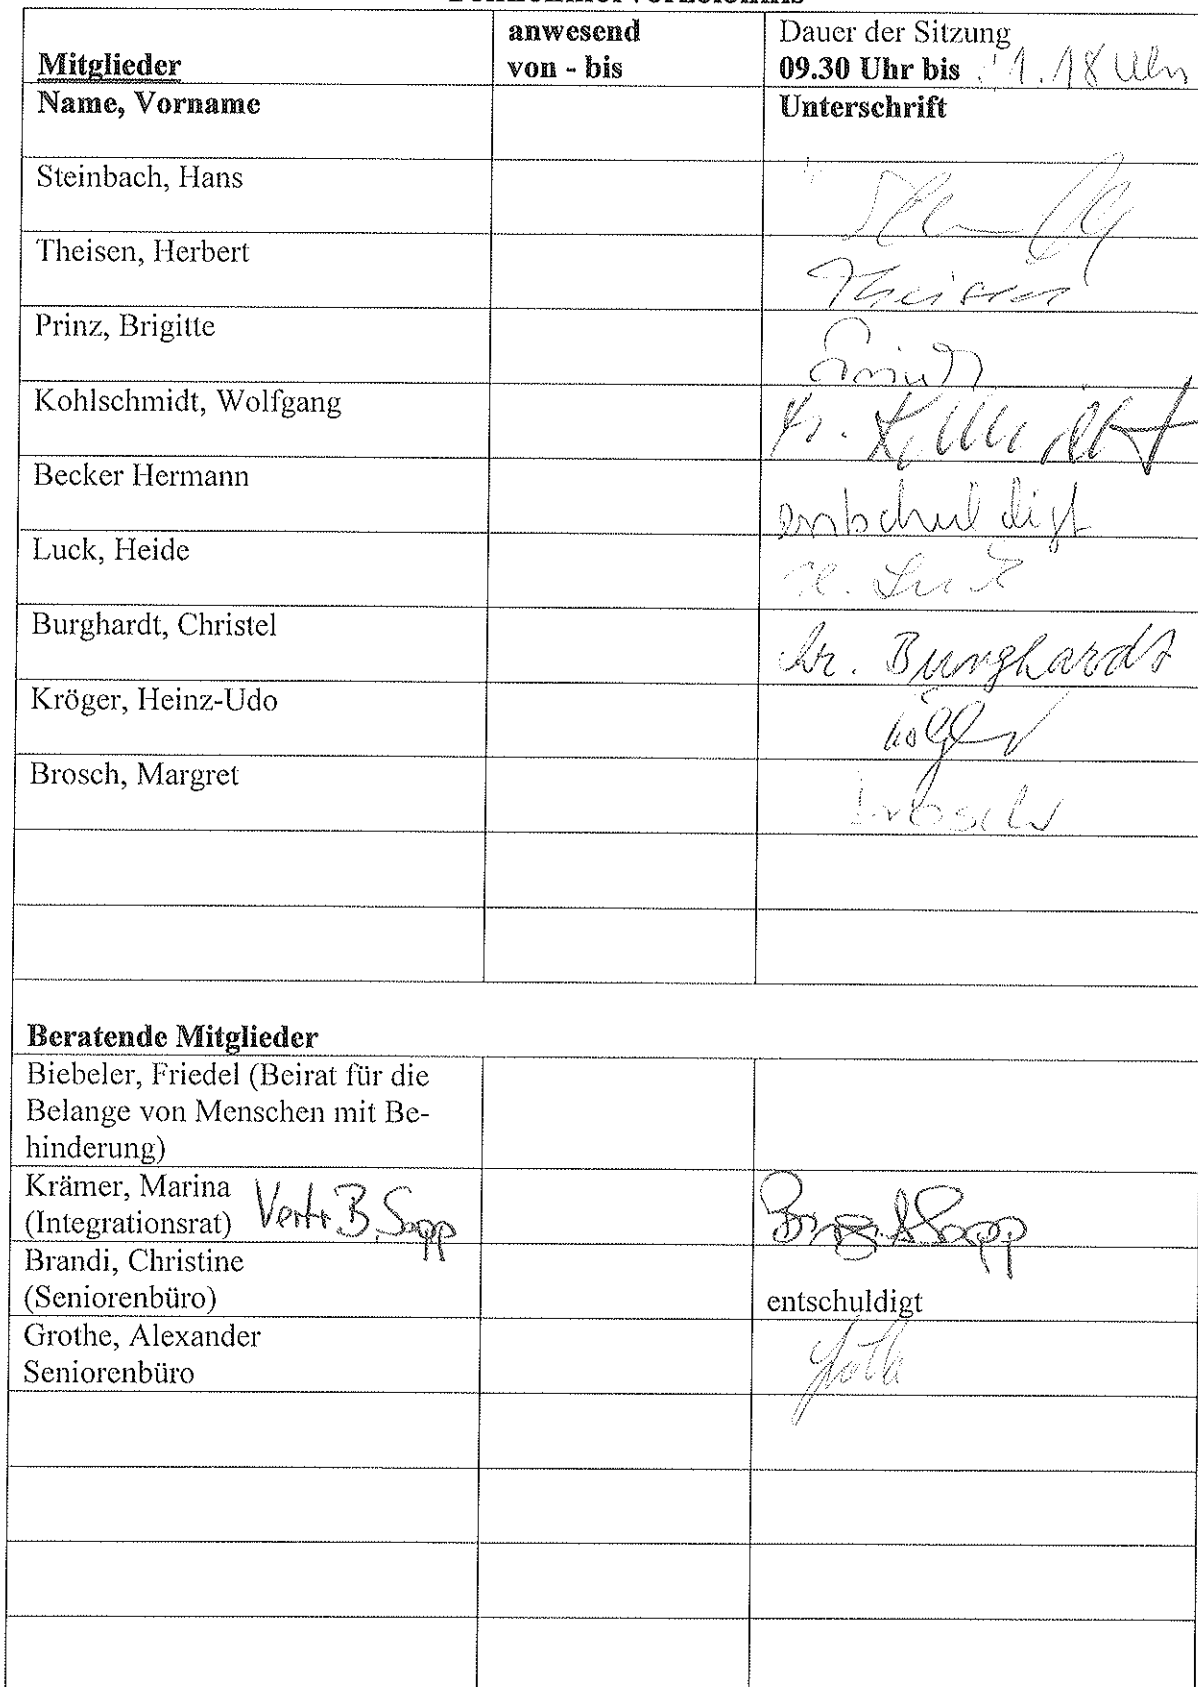 anwesend
von - bis
Dauer der Sitzung
Mitglieder
09.30 Uhr bis 11.18 Uhr
Name, Vorname
Unterschrift
Steinbach, Hans
Theisen, Herbert
Theisen
Prinz, Brigitte
Kohlschmidt, Wolfgang
Becker Hermann
entschuldigt
Luck, Heide
H. Luck
Burghardt, Christel
Chr. Burghardt
Kröger, Heinz-Udo
Brosch, Margret
Brosch
Beratende Mitglieder
Biebeler, Friedel (Beirat für die
Belange von Menschen mit Be-
hinderung)
Krämer, Marina
(Integrationsrat) Vertr. B. Sapp
Birgit Sapp
Brandi, Christine
(Seniorenbüro)
entschuldigt
Grothe, Alexander
Seniorenbüro